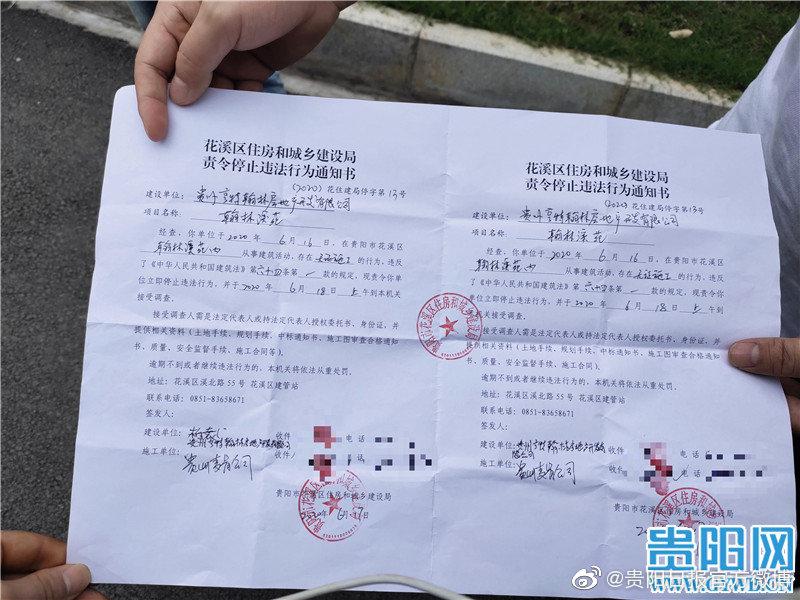 花溪区住房和城乡建设局
责令停止违法行为通知书
(2020)花住建局停字第13号
建设单位:贵州亨特翰林房地产开发有限公司
项目名称:翰林溪苑
经查,你单位于2020年6月16日,在贵阳市花溪区
翰林溪苑内从事建筑活动,存在无证施工的行为,违反
了《中华人民共和国建筑法》第六十四条第一款的规定,现责令你
单位立即停止违法行为,并于2020年6月18日上午到本机关
接受调查。
接受调查人需是法定代表人或持法定代表人授权委托书、身份证,并
提供相关资料(土地手续、规划手续、中标通知书、施工图审查合格通知
书、质量、安全监督手续、施工合同等)。
逾期不到或者继续违法行为的,本机关将依法从重处罚。
地址:花溪区溪北路55号 花溪区建管站
联系电话:0851-83658671
签发人:
建设单位:
收件 电话
施工单位:
收件 电话
贵阳市花溪区住房和城乡建设局
2020年6月17日
花溪区住房和城乡建设局
责令停止违法行为通知书
(2020)花住建局停字第13号
建设单位:贵州亨特翰林房地产开发有限公司
项目名称:翰林溪苑
经查,你单位于2020年6月16日,在贵阳市花溪区
翰林溪苑内从事建筑活动,存在无证施工的行为,违反
了《中华人民共和国建筑法》第六十四条第一款的规定,现责令你
单位立即停止违法行为,并于2020年6月18日上午到本
机关接受调查。
接受调查人需是法定代表人或持法定代表人授权委托书、身份证,并
提供相关资料(土地手续、规划手续、中标通知书、施工图审查合格通知
书、质量、安全监督手续、施工合同)。
逾期不到或者继续违法行为的,本机关将依法从重处罚。
地址:花溪区溪北路55号 花溪区建管站
联系电话:0851-83658671
签发人:
建设单位:
收件 电话
施工单位:
收件 电话
贵阳市花溪区住房和城乡建设局
贵阳网
WWW.GYWB.CN
@贵阳日报官方微博